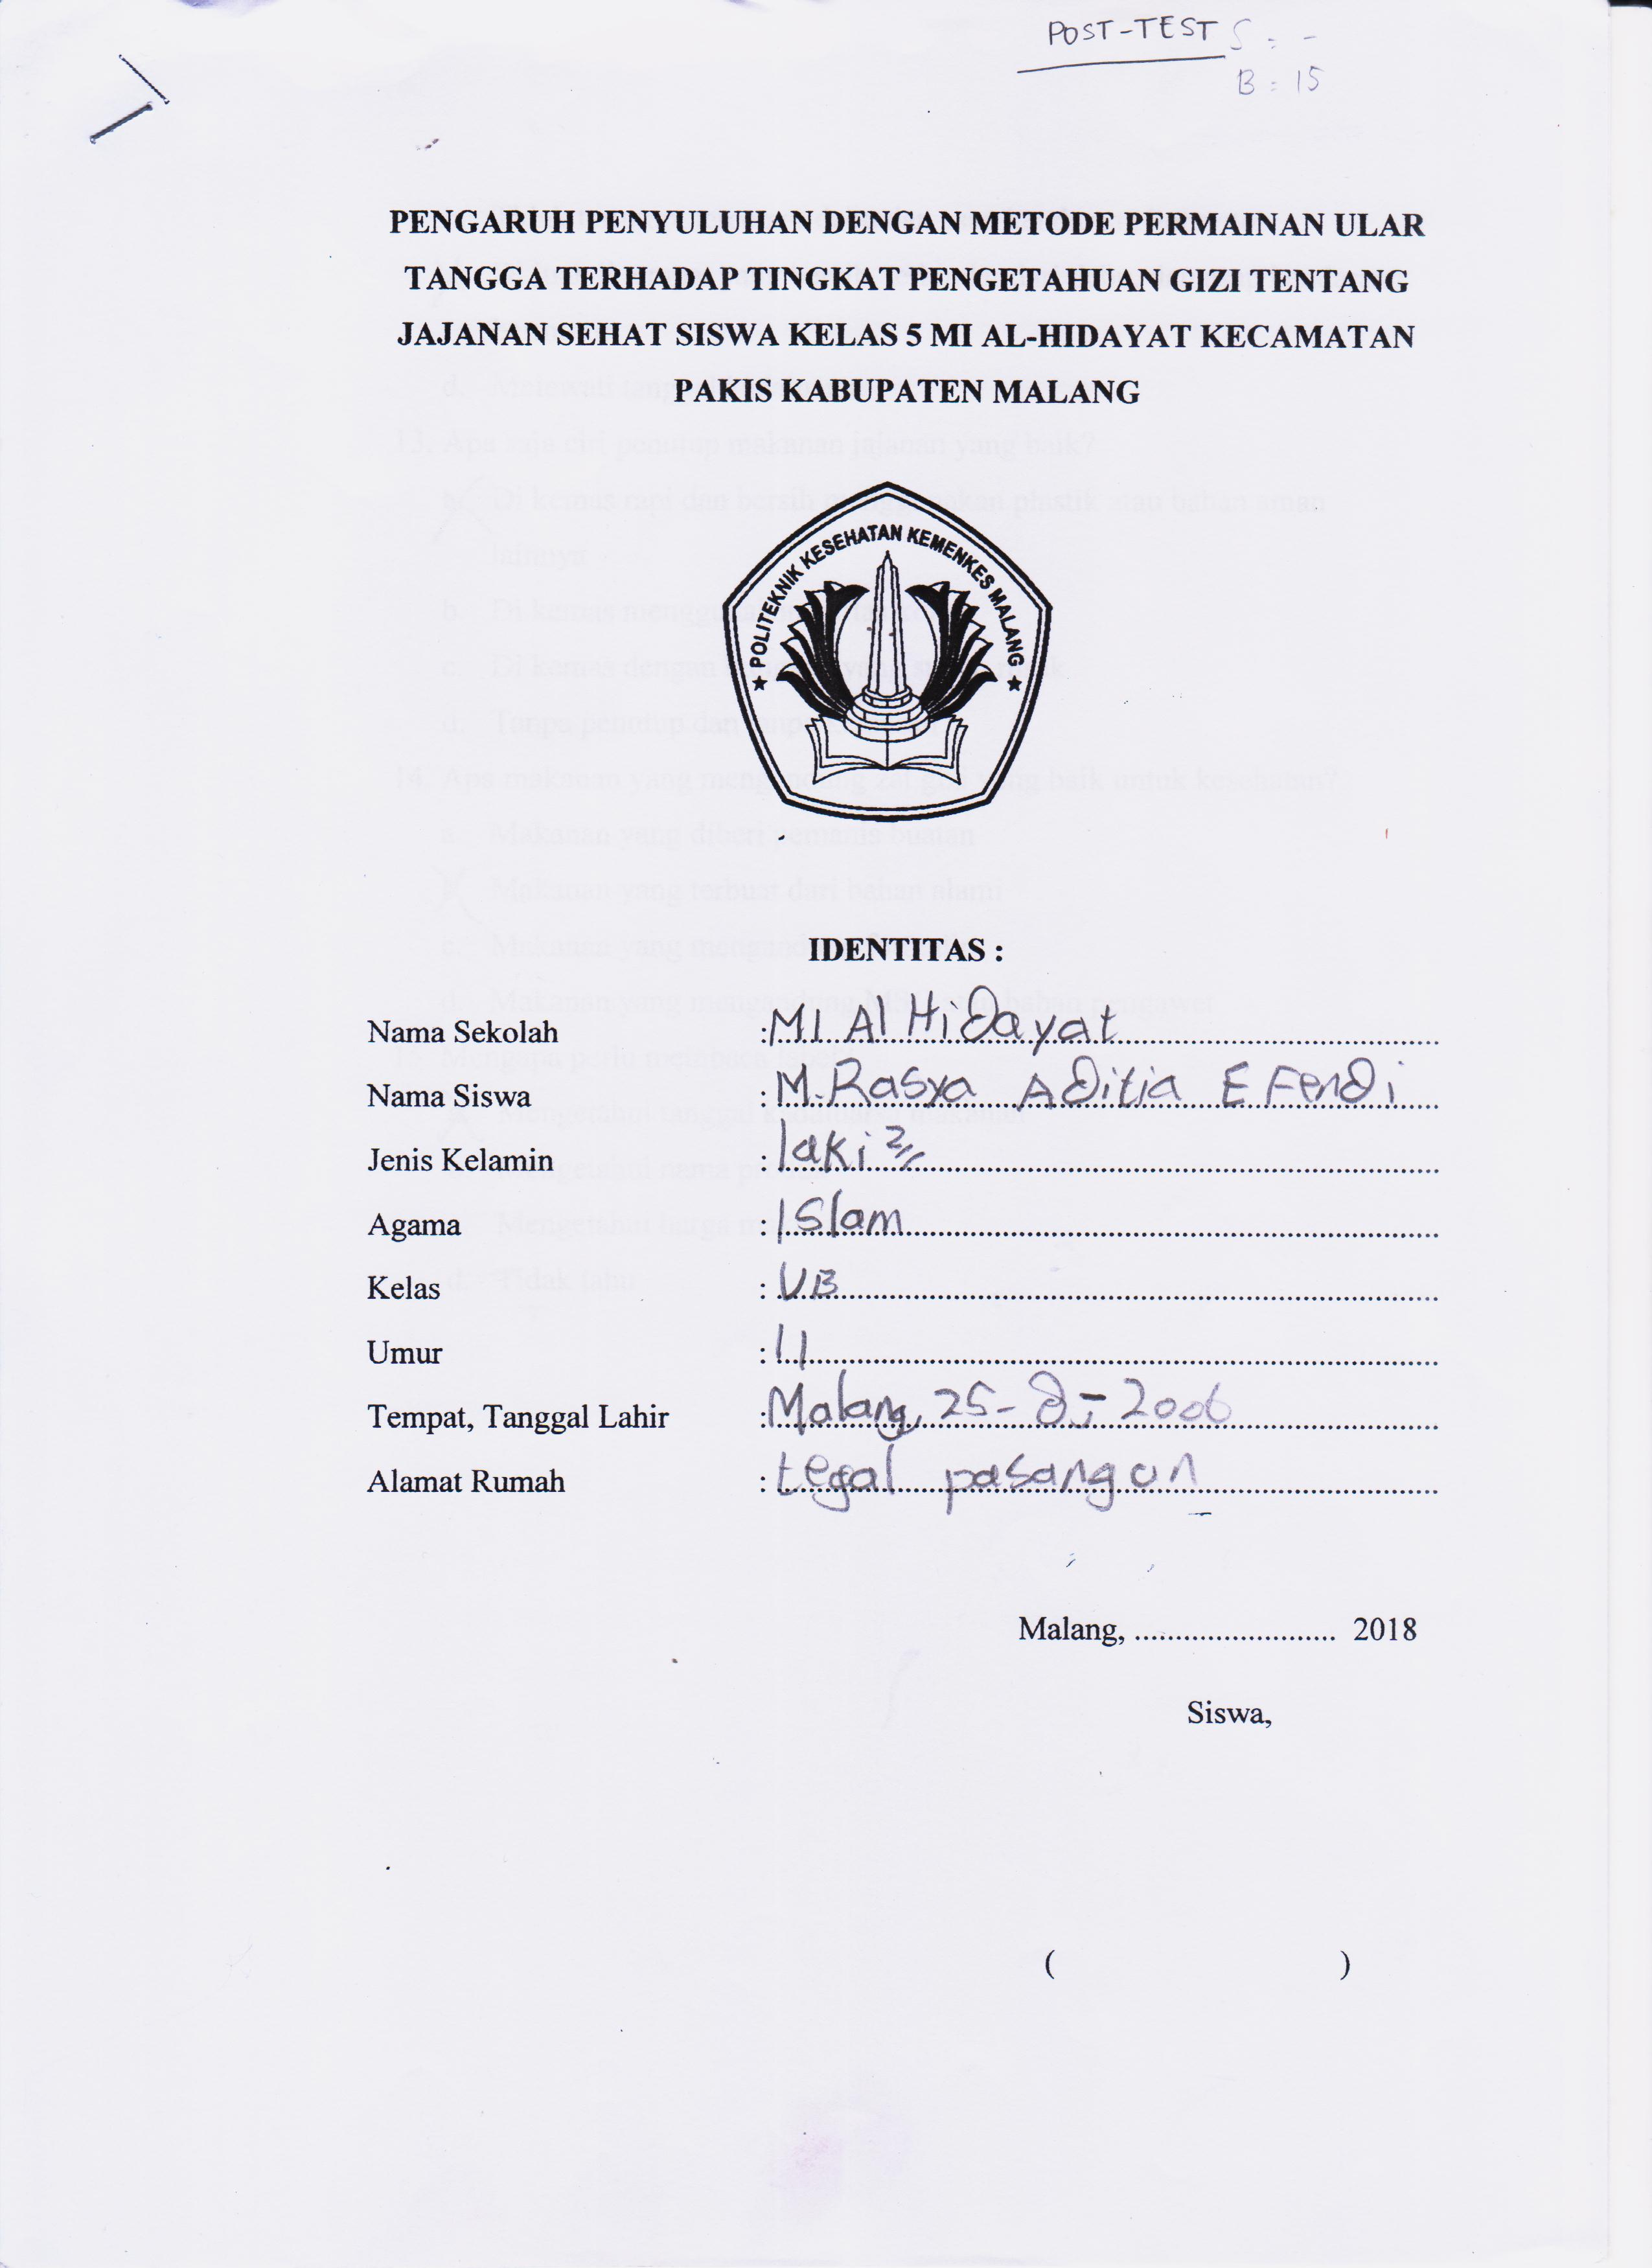 POST-TEST S : -
B : 15
PENGARUH PENYULUHAN DENGAN METODE PERMAINAN ULAR
TANGGA TERHADAP TINGKAT PENGETAHUAN GIZI TENTANG
JAJANAN SEHAT SISWA KELAS 5 MI AL-HIDAYAT KECAMATAN
PAKIS KABUPATEN MALANG
POLITEKNIK KESEHATAN KEMENKES MALANG
IDENTITAS :
Nama Sekolah : MI Al Hidayat
Nama Siswa : M. Rasya Aditia EFendi
Jenis Kelamin : laki 2//
Agama : ISlam
Kelas : VB
Umur : 11
Tempat, Tanggal Lahir : Malang, 25 - - 2006
Alamat Rumah : tegal pasangan
Malang, ........................ 2018
Siswa,
( )